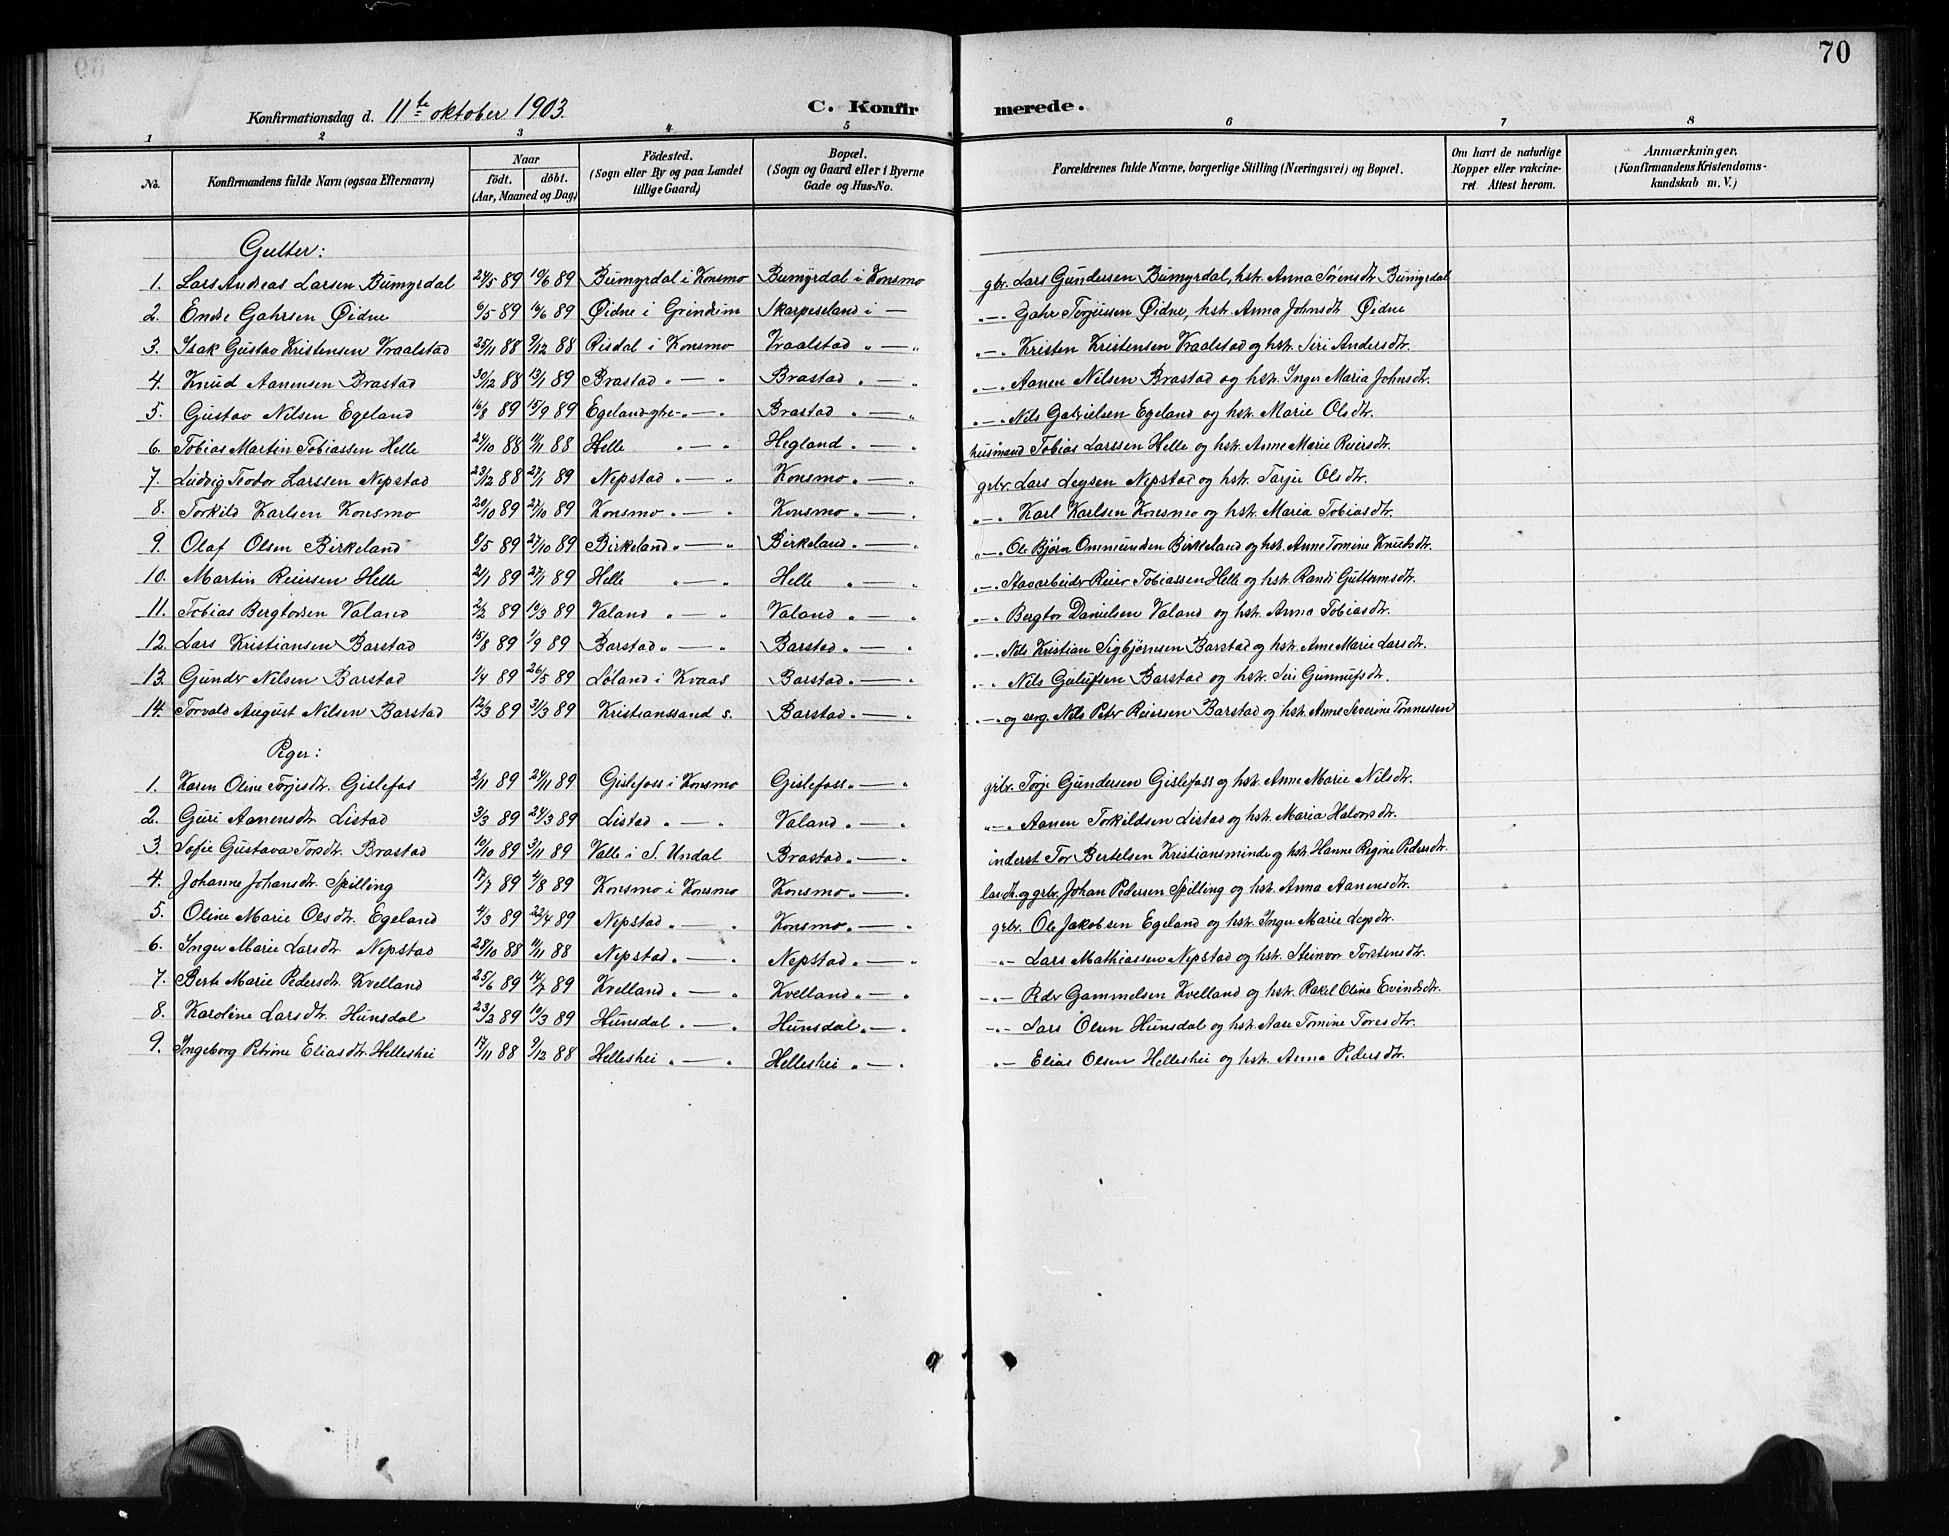 70
Konfirmationsdag d. 11te oktober 1903.
C. Konfirmerede.
1 2 3 4 5 6 7 8
No. Konfirmandens fulde Navn (ogsaa Efternavn) Naar födt. döbt. (Aar, Maaned og Dag) Födested. (Sogn eller By og paa Landet tillige Gaard) Bopæl. (Sogn og Gaard eller i Byerne Gade og Hus-No. Forældrenes fulde Navne, borgerlige Stilling (Næringsvei) og Bopæl. Om havt de naturlige Kopper eller vakcineret Attest herom. Anmærkninger. (Konfirmandens Kristendomskundskab m. V.)
Gutter:
1. Lars Andreas Larsen Bumyrdal 24/5 89 10/6 89 Bumyrdal i Konsmo Bumyrdal i Konsmo gbr. Lars Gundersen Bumyrdal, hstr. Anna Sörensdtr Bumyrdal
2. Endre Gahrsen Øidne 6/5 89 10/6 89 Øidne i Grindum Skarpeseland i — „—„ Gahr Torjussen Øidne, hstr. Anna Johnsdtr Øidne
3. Isak Gustav Kristensen Vraalstad 25/11 88 9/12 88 Risdal i Konsmo Vraalstad „ — „ „—„ Kristen Kristensen Vraalstad og hstr. Siri Andersdtr.
4. Knud Aanensen Brastad 30/12 88 13/1 89 Brastad „ — „ Brastad „ — „ „—„ Aanen Nilsen Brastad og hstr. Inger Maria Johnsdtr.
5. Gustav Nilsen Egeland 16/8 89 15/9 89 Egeland „ — „ Brastad „ — „ „—„ Nils Gabrielsen Egeland og hstr. Marie Olsdtr.
6. Tobias Martin Tobiassen Helle 24/10 88 11/11 88 Helle „ — „ Hegland „ — „ husmand Tobias Larssen Helle og hstr. Anne Marie Reiersdtr.
7. Ludvig Teodor Larssen Nepstad 23/12 88 27/1 89 Nepstad „ — „ Konsmo „ — „ grbr. Lars Legsen Nepstad og hstr. Tarjer Olsdtr.
8. Torkild Karlsen Konsmo 20/10 89 27/10 89 Konsmo „ — „ Konsmo „ — „ „—„ Karl Karlsen Konsmo og hstr. Maria Tobiasdtr.
9. Olaf Olsen Birkeland 9/5 89 27/10 89 Birkeland „ — „ Birkeland „ — „ „—„ Ole Bjørn Ommunden Birkeland og hstr. Anne Tomine Knutsdtr.
10. Martin Reiersen Helle 21/1 89 27/1 89 Helle „ — „ Helle „ — „ „—„ Stavarbeider Reier Tobiassen Helle og hstr. Randi Guttormsdtr.
11. Tobias Bergtorsen Valand 2/2 89 10/3 89 Valand „ — „ Valand „ — „ „—„ Bergtor Danielsen Valand og hstr. Anna Tobiasdtr.
12. Lars Kristiansen Barstad 15/8 89 1/9 89 Barstad „ — „ Barstad „ — „ „—„ Nils Kristian Sigbjørnsen Barstad og hstr. Anne Marie Larsdtr.
13. Gunder Nilsen Barstad 1/4 89 26/5 89 Löland i Kvaas Barstad „ — „ „—„ Nils Gulufsen Barstad og hstr. Siri Gunnufsdtr.
14. Torvald August Nilsen Barstad 12/3 89 31/3 89 Kristianssand s. Barstad „ — „ „—„ og serg. Nils Peter Reiersen Barstad og hstr. Anne Severine Tönnessen
Piger:
1. Karen Oline Törjesdtr. Gislefos 2/11 89 24/11 89 Gislefoss i Konsmo Gislefoss „ — „ grbr. Törje Gundersen Gislefoss og hstr. Anne Marie Nilsdtr.
2. Guri Aanensdtr. Listad 3/3 89 24/3 89 Listad „ — „ Valand „ — „ „—„ Aanen Torkildsen Listad og hstr. Maria Halvorsdtr.
3. Sofie Gustava Torsdtr. Brastad 10/10 89 3/11 89 Valle i S. Undal Brastad „ — „ inderst Tor Bertelsen Kristiansminde og hstr. Hanne Regine Pedersdtr.
4. Johanne Johansdtr. Spilling 17/7 89 4/8 89 Konsmo i Konsmo Konsmo „ — „ og grbr. Johan Pedersen Spilling og hstr. Anna Aanensdtr.
5. Oline Marie Olsdtr. Egeland 4/3 89 22/4 89 Nepstad „ — „ Konsmo „ — „ grbr. Ole Jakobsen Egeland og hstr. Inger Marie Legsdtr.
6. Inger Marie Larsdtr. Nepstad 28/10 88 11/11 88 Nepstad „ — „ Nepstad „ — „ „—„ Lars Mathiassen Nepstad og hstr. Steinvor Torstensdtr.
7. Berte Marie Pedersdtr. Kvelland 25/6 89 14/7 89 Kvelland „ — „ Kvelland „ — „ „—„ Peder Gammelsen Kvelland og hstr. Rakel Oline Evindsdtr.
8. Karoline Larsdtr. Hunsdal 23/2 89 10/3 89 Hunsdal „ — „ Hunsdal „ — „ „—„ Lars Olsen Hunsdal og hstr. Aase Tomine Toresdtr.
9. Ingeborg Petrine Eliasdtr. Helleshei 17/11 88 9/12 88 Helleshei „ — „ Helleshei „ — „ „—„ Elias Olsen Helleshei og hstr. Anna Pedersdtr.